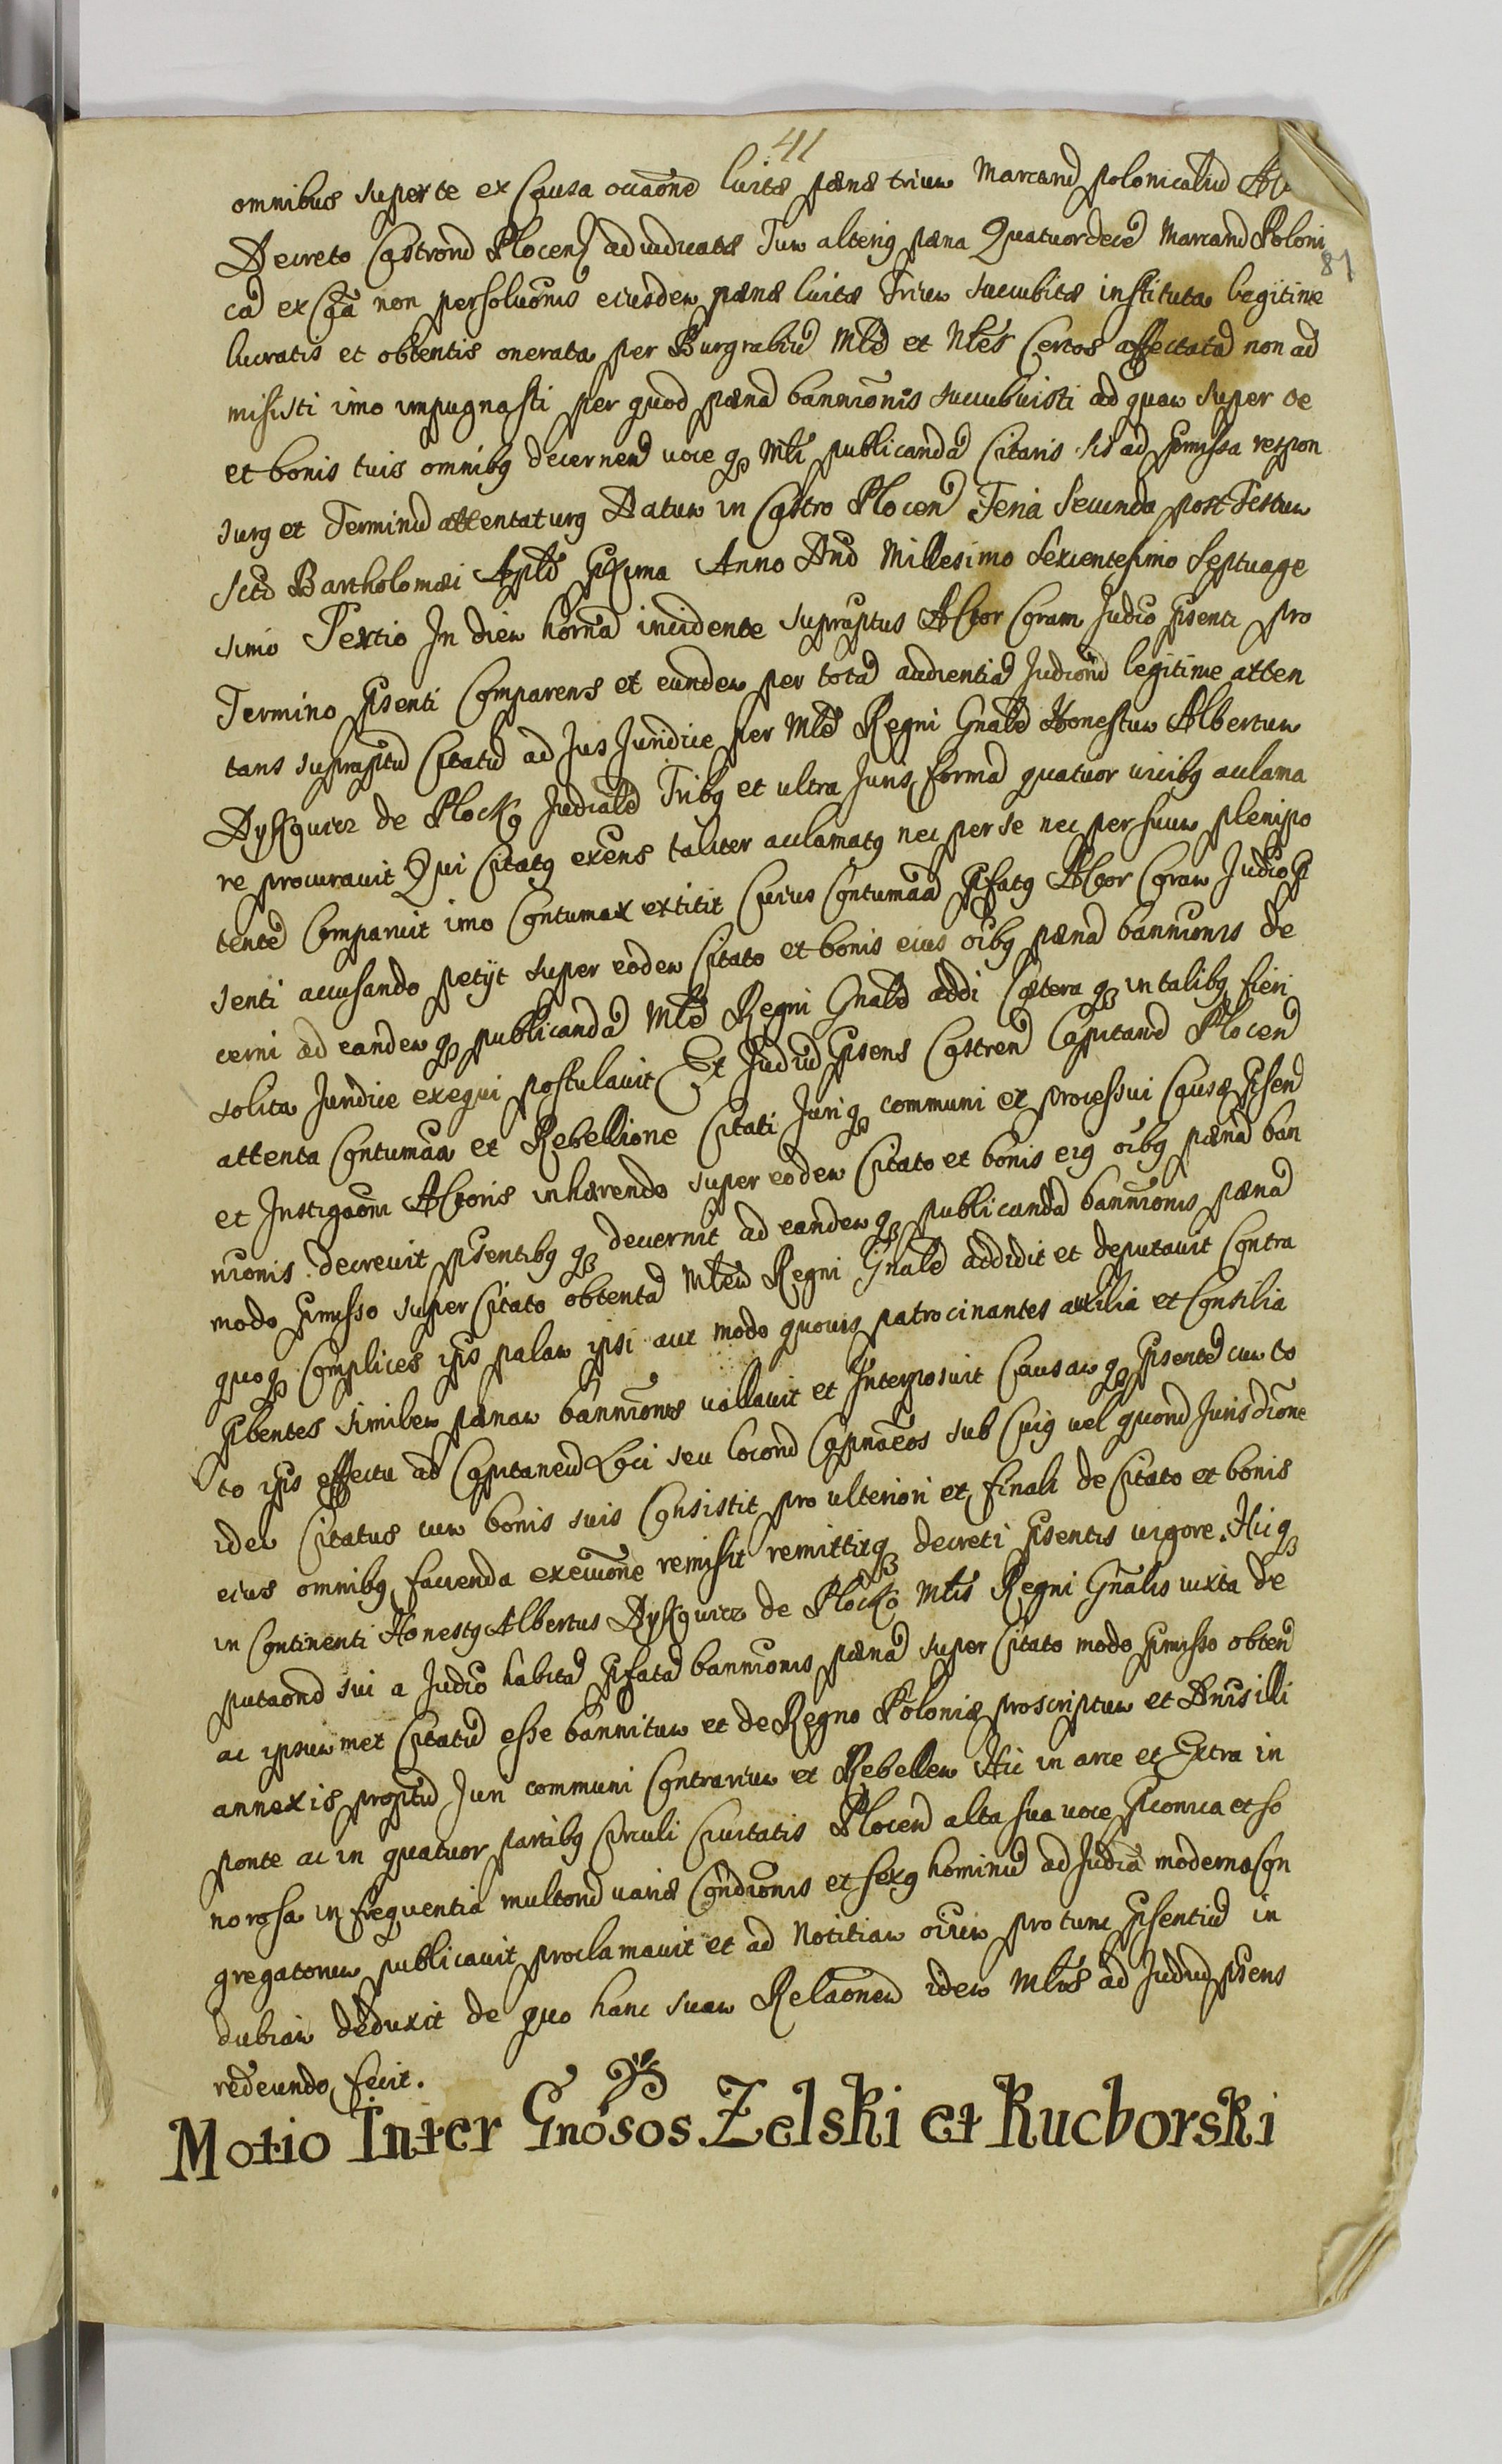 41
omnibus super te ex Causa occaōne luitæ pænæ trium Marcarū polonicaliū
Decreto Castrorū Plocenś adiudicatæ Tum alteriq pæna Quatuordecē Marcarū Poloni
81
cā ex Cā non persoluōnis eiusdem pænæ luitæ Trium succubitæ instituta legitime
lucratis et obtentis onerata per Burgrabiū Mlē et Nles Certos affectatā non ad
misisti imo impugnasti per quod pænā bannīonis succubuisti ad quam super te
et bonis tuis omnibq decernend voce qꝫ Mli publicandā Citaris sis ad pmissa respon
surq et Terminū attentaturq Datum in Castro Plocen Feria Secunda post Festum
Scti Bartholomæi Apli pxima Anno Dni Millesimo Sexcentesimo Septuage
simo Tertio In diem hornā incidente supraptus Actor Coram Judīo psenti pro
Termino psenti Comparens et eundem per totā audientiā Judīorū legitime atten
tans supraptū Citatū ad Jus Juridice per Mlē Regni Gnalē Honestum Albertum
Dyskowicz de Plocko Judīalē Tribq et ultra Juris formā quatuor vicibq acclama
re procuravit Qui Citatq exēns taliter acclamatq nec per se nec per suum plenipo
tentē Comparuit imo Contumax extitit Cuius Contumāā pfatq Actor Coram Judīo p
senti accusando petyt super eodem Citato et bonis eius oībq pænā bannīonis de
cerni ad eandem qꝫ publicandā Mlē Regni Gnalē addi Cætera qꝫ in talibq fieri
solita Juridice exequi postulavit Et Judīū psens Castrenś Capitanā Plocenś
attenta Contumāa et Rebellione Citati Juri qꝫ communi et processui Causæ psenś
et Instigāoni Actoris inhærendo super eodem Citato et bonis eiq oībq pænā ban
nīonis decrevit psentibq qꝫ decernit ad eandem qꝫ publicandā bannīonis pænā
modo pmisso super Citato obtentā Mlem Regni Gnalē addidit et deputavit Contra
quoqꝫ Complices ipīs palam ipsi aut modo quovis patrocinantes auxilia et Consilia
pbentes similem pænam bannīonis vallavit et Interposuit Causam qꝫ psentē cum to
to ipīs effectu ad Capitaneū Loci seu locorū Capnāeos sub Cuiq vel quorū Jurisdīone
idem Citatus cum bonis suis Consistit pro ulteriori et finali de Citato et bonis
eius omnibq facienda executīone remisit remittitqꝫ decreti psentis vigore. Hicqꝫ
in Continenti Honestq Albertus Dyskowicz de Plocko Mlis Regni Gnalis iuxta de
putaōnē sui a Judīo habitā pfatā bannīonis pænā super Citato modo pmisso obtenś
ac ipsummet Citatū esse bannitum et de Regno Poloniæ proscriptum et Dnis illi
annexis proptū Juri communi Contrarium et Rebellem Hic in arce et Extra in
ponte ac in quatuor partibq Circuli Civitatis Plocenś alta sua voce pconica et so
norosa in frequentia multorū variæ Conditīonis et sexq hominū ad Judīa moderna Con
gregatorum publicavit proclamavit et ad Notitiam oīum pro tunc psentiū in
dubiam deduxit de quo hanc suam Relaōnem idem Mlis ad Judīū psens
redeundo fecit.
Motio Inter Gnosos Zelski et Kucborski